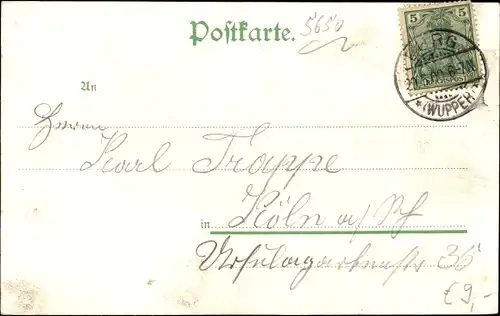 Postkarte.
5650
5 5
BURG
(WUPPER)
An
Herrn
Karl Trappe
in Köln a/Rh
Ursulagartenstr 36
€ 9,-